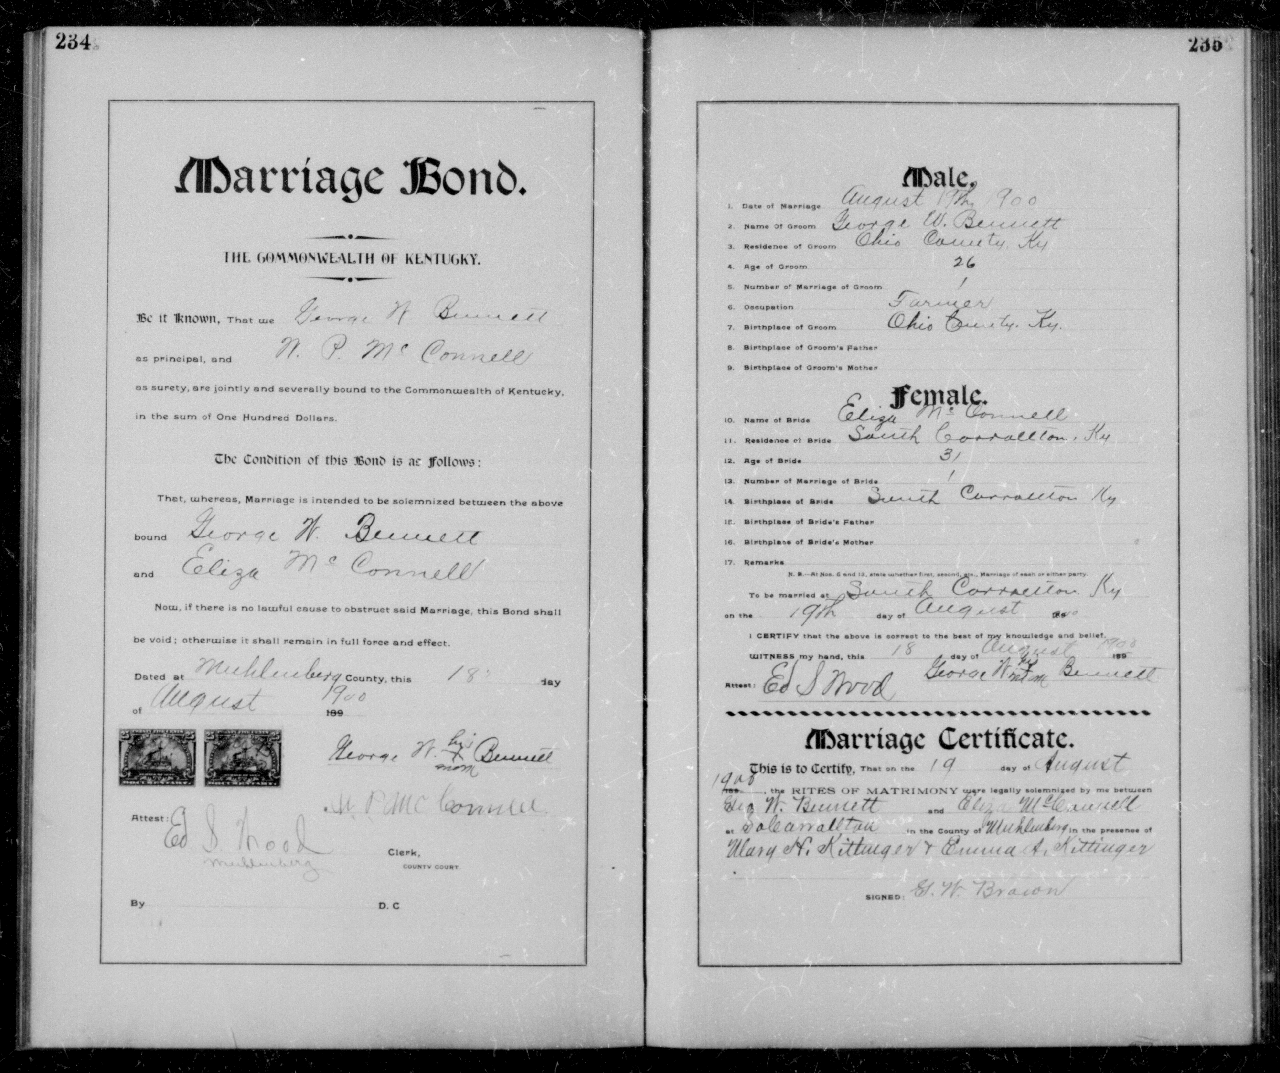 234
Marriage Bond.
THE COMMONWEALTH OF KENTUCKY.
Be it Known, That we George W Bennett
as principal, and W. P. McConnell
as surety, are jointly and severally bound to the Commonwealth of Kentucky,
in the sum of One Hundred Dollars.
The Condition of this Bond is as Follows:
That, whereas, Marriage is intended to be solemnized between the above
bound George W. Bennett
and Eliza McConnell
Now, if there is no lawful cause to obstruct said Marriage, this Bond shall
be void; otherwise it shall remain in full force and effect.
Dated at Muhlenberg County, this 18 day
of August 1900 189
George W. his x mark Bennett
W P McConnell
Attest:
Ed S. Wood
Muhlenberg
Clerk,
COUNTY COURT
By D. C.
235
Male.
1. Date of Marriage August 19th 1900
2. Name Of Groom George W. Bennett
3. Residence of Groom Ohio County Ky
4. Age of Groom 26
5. Number of Marriage of Groom 1
6. Occupation Farmer
7. Birthplace of Groom Ohio County. Ky.
8. Birthplace of Groom's Father
9. Birthplace of Groom's Mother
Female.
10. Name of Bride Eliza McConnell
11. Residence of Bride South Carrollton, Ky
12. Age of Bride 31
13. Number of Marriage of Bride 1
14. Birthplace of Bride South Carrollton Ky
15. Birthplace of Bride's Father
16. Birthplace of Bride's Mother
17. Remarks
N. B.—At Nos. 5 and 13, state whether first, second, etc., Marriage of each or either party.
To be married at South Carrollton Ky
on the 19th day of August
I CERTIFY that the above is correct to the best of my knowledge and belief.
WITNESS my hand, this 18 day of August 1900 189
George W his x mark Bennett
Attest: Ed S Wood
Marriage Certificate.
This is to Certify, That on the 19 day of August
1900, the RITES OF MATRIMONY were legally solemnized by me between
Geo W. Bennett and Eliza McConnell
at So Carrollton in the County of Muhlenberg in the presence of
Mary H. Kittinger & Emma A. Kittinger
SIGNED: G. W. Brown